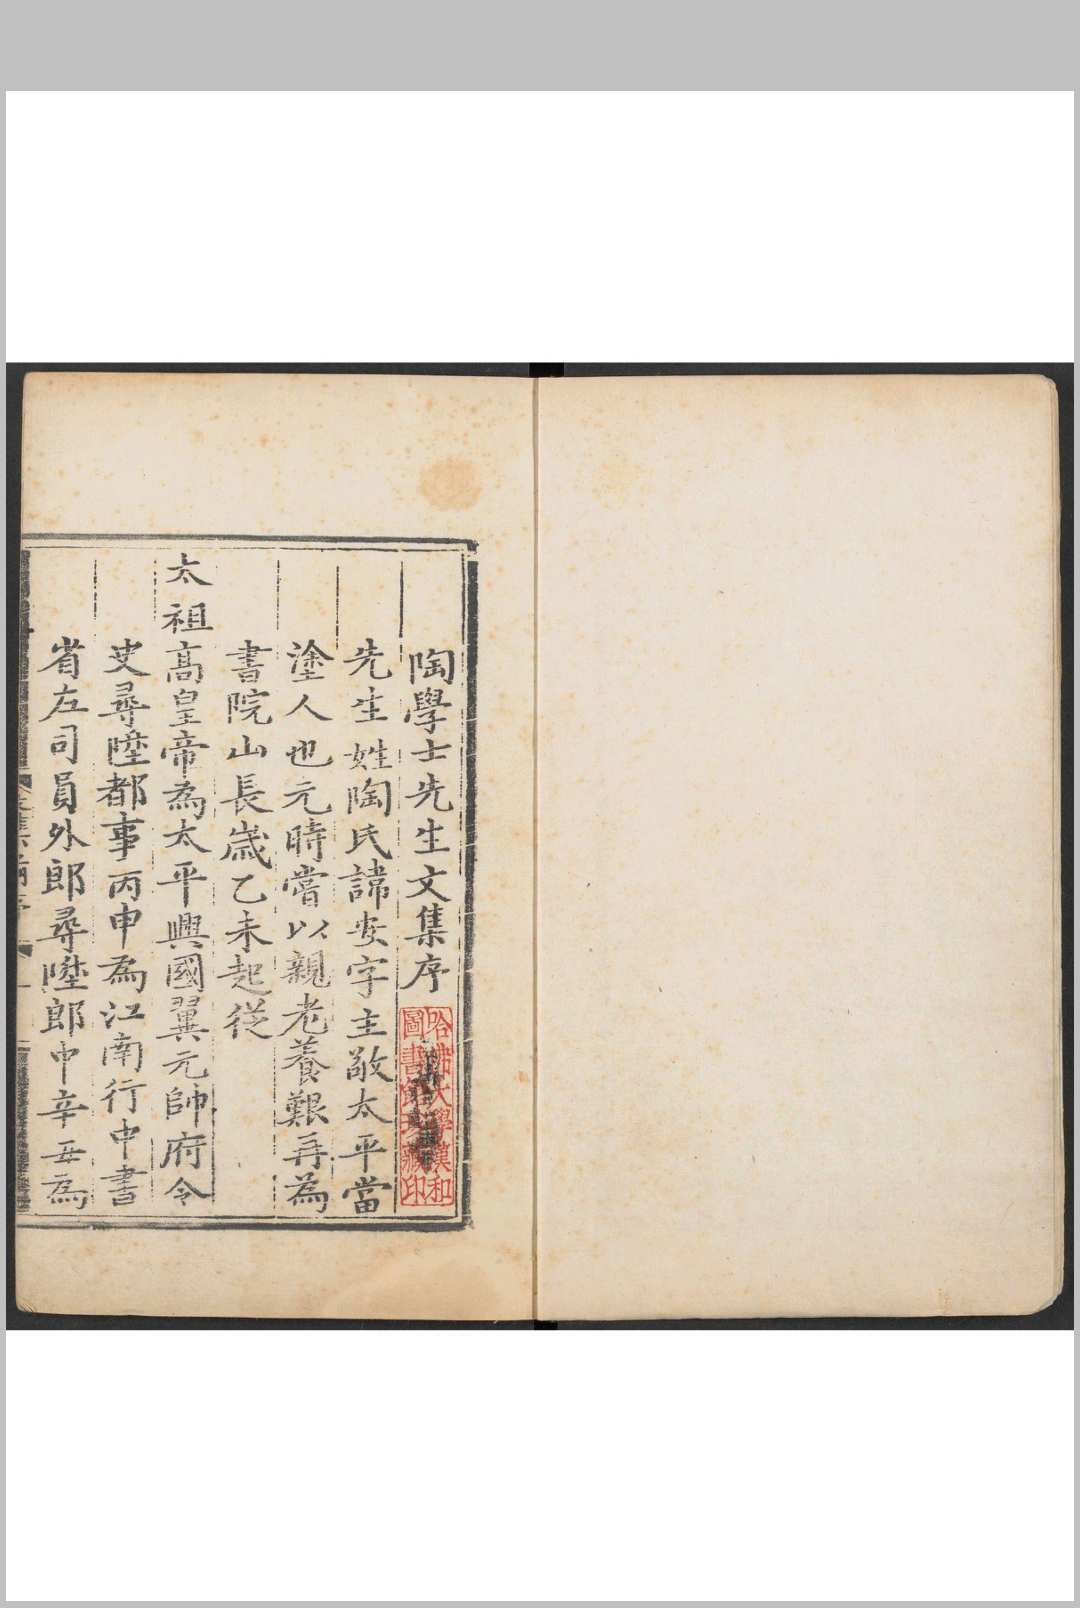 陶學士先生文集序
哈佛大學漢和
圖書館珍藏印
先生姓陶氏諱安字主敬太平當
塗人也元時嘗以親老養艱再為
書院山長歲乙未起從
太祖高皇帝為太平興國翼元帥府令
史尋陞都事丙申為江南行中書
省左司員外郎尋陞郎中辛丑為